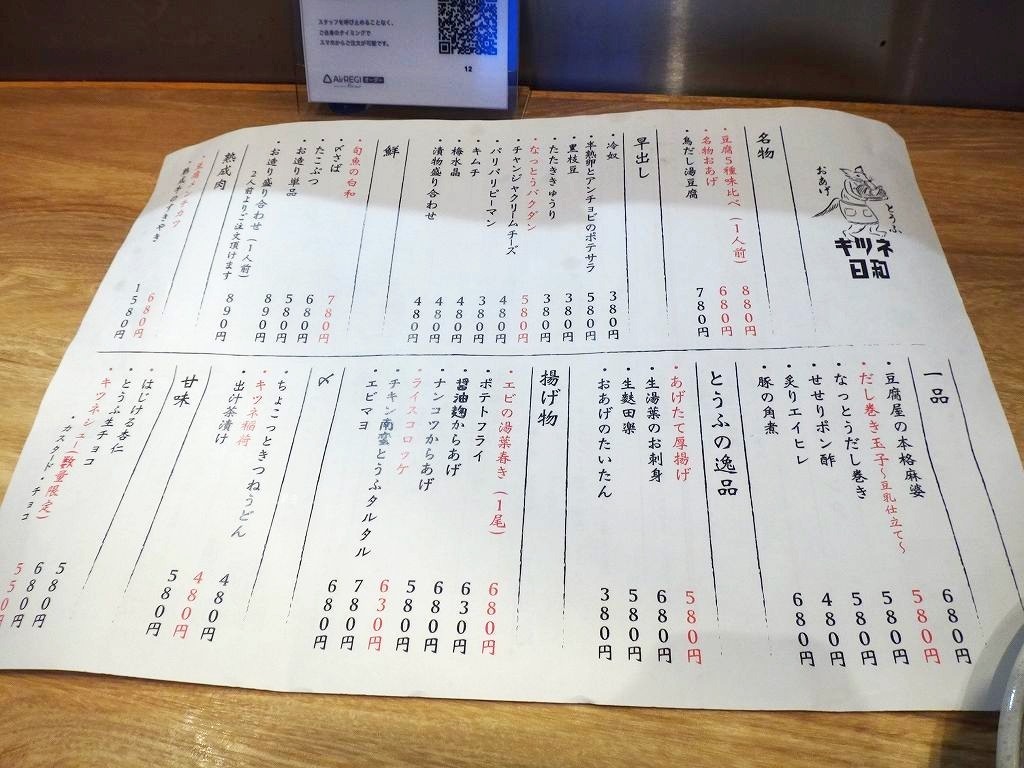 スタッフを呼び止めることなく、
ご自身のタイミングで
スマホからご注文が可能です。
12
AirREGI オーダー
おあげ
とうふ
キツネ
日和
名物
・豆腐5種味比べ(1人前) 880円
・名物おあげ 680円
・鳥だし湯豆腐 780円
早出し
・冷奴 380円
・半熟卵とアンチョビのポテサラ 580円
・黒枝豆 380円
・たたききゅうり 380円
・なっとうバクダン 580円
・チャンジャクリームチーズ 480円
・バリバリピーマン 380円
・キムチ 480円
・梅水晶 480円
・漬物盛り合わせ 480円
鮮
・旬魚の白和 780円
・〆さば 680円
・たこぶつ 580円
・お造り単品 890円
・お造り盛り合わせ(1人前) 890円
2人前よりご注文頂けます
熟成肉
680円
1580円
一品
・豆腐屋の本格麻婆 680円
・だし巻き玉子〜豆乳仕立て〜 580円
・なっとうだし巻き 580円
・せせりポン酢 580円
・炙りエイヒレ 480円
・豚の角煮 680円
とうふの逸品
・あげたて厚揚げ 580円
・生湯葉のお刺身 680円
・生麩田楽 580円
・おあげのたいたん 380円
揚げ物
・エビの湯葉春き(1尾) 680円
・ポテトフライ 630円
・醤油麹からあげ 680円
・ナンコツからあげ 580円
・ライスコロッケ 630円
・チキン南蛮とうふタルタル 780円
・エビマヨ 680円
〆
・ちょこっときつねうどん 480円
・キツネ稲荷 480円
・出汁茶漬け 580円
甘味
・はじける杏仁 580円
・とうふ生チョコ 680円
・キツネシュー(数量限定) 550円
・カスタード・チョコ